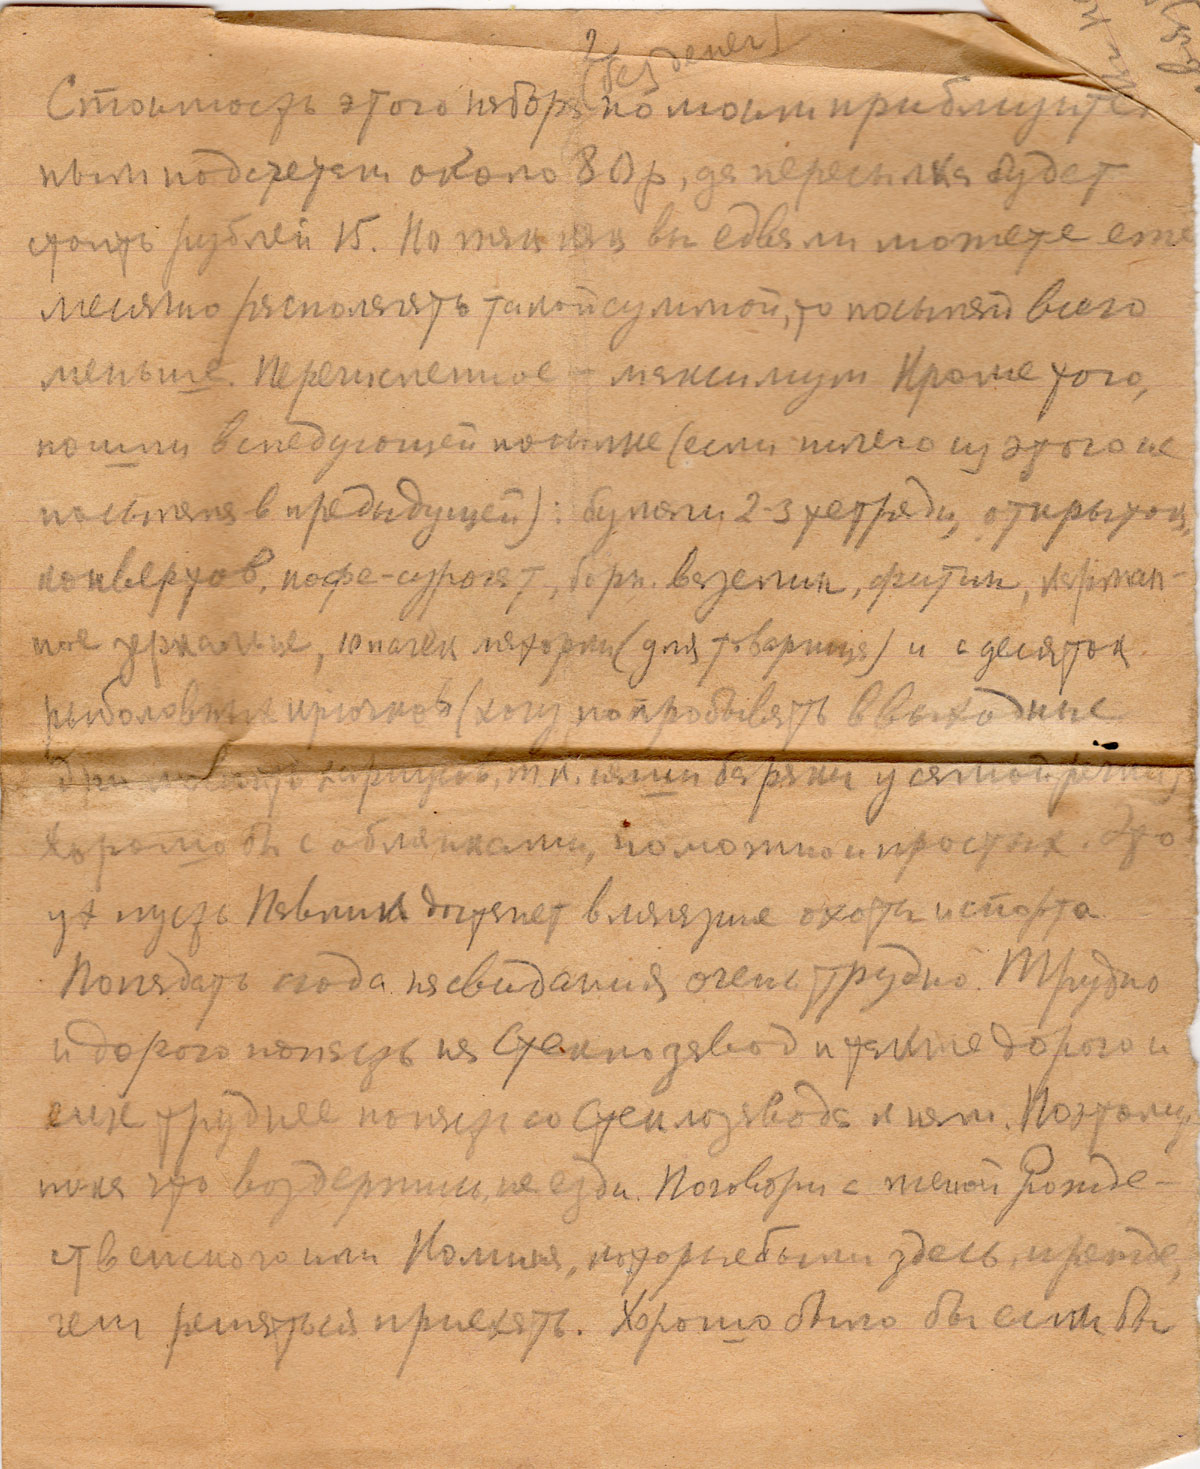 (без денег)
Стоимость этого набора по моим приблизитель
ным подсчетам около 80 р, да пересылка будет
стоить рублей 15. Но так как вы едва ли можете еже
месячно располагать такой суммой, то посылай всего
меньше. Перечисленное – максимум Кроме того,
пошли в следующей посылке (если ничего из этого не
послала в предыдущей): бумаги 2-3 тетради, открыток,
конвертов, кофе-суррогат, борн. вазелин, фитин, карман-
ное зеркальце, 10 пачек махорки (для товарища) и с десяток
рыболовных крючков (хочу попробывать в выходные
дни ловить хариусов, т.к. наши бараки у самой речки)
Хорошо бы с поблянками, но можно и простых. Это
уж пусть Павлик достанет в магазине охоты и спорта
Попадать сюда на свидания очень трудно. Трудно
и дорого попасть на Стеклозавод и также дорого и
еще труднее попасть со Стеклозавода к нам. Поэтому
пока что воздержись, не езди. Поговори с женой Рожде-
ственского или, которые были здесь, прежде,
чем решаться приехать. Хорошо было бы если бы